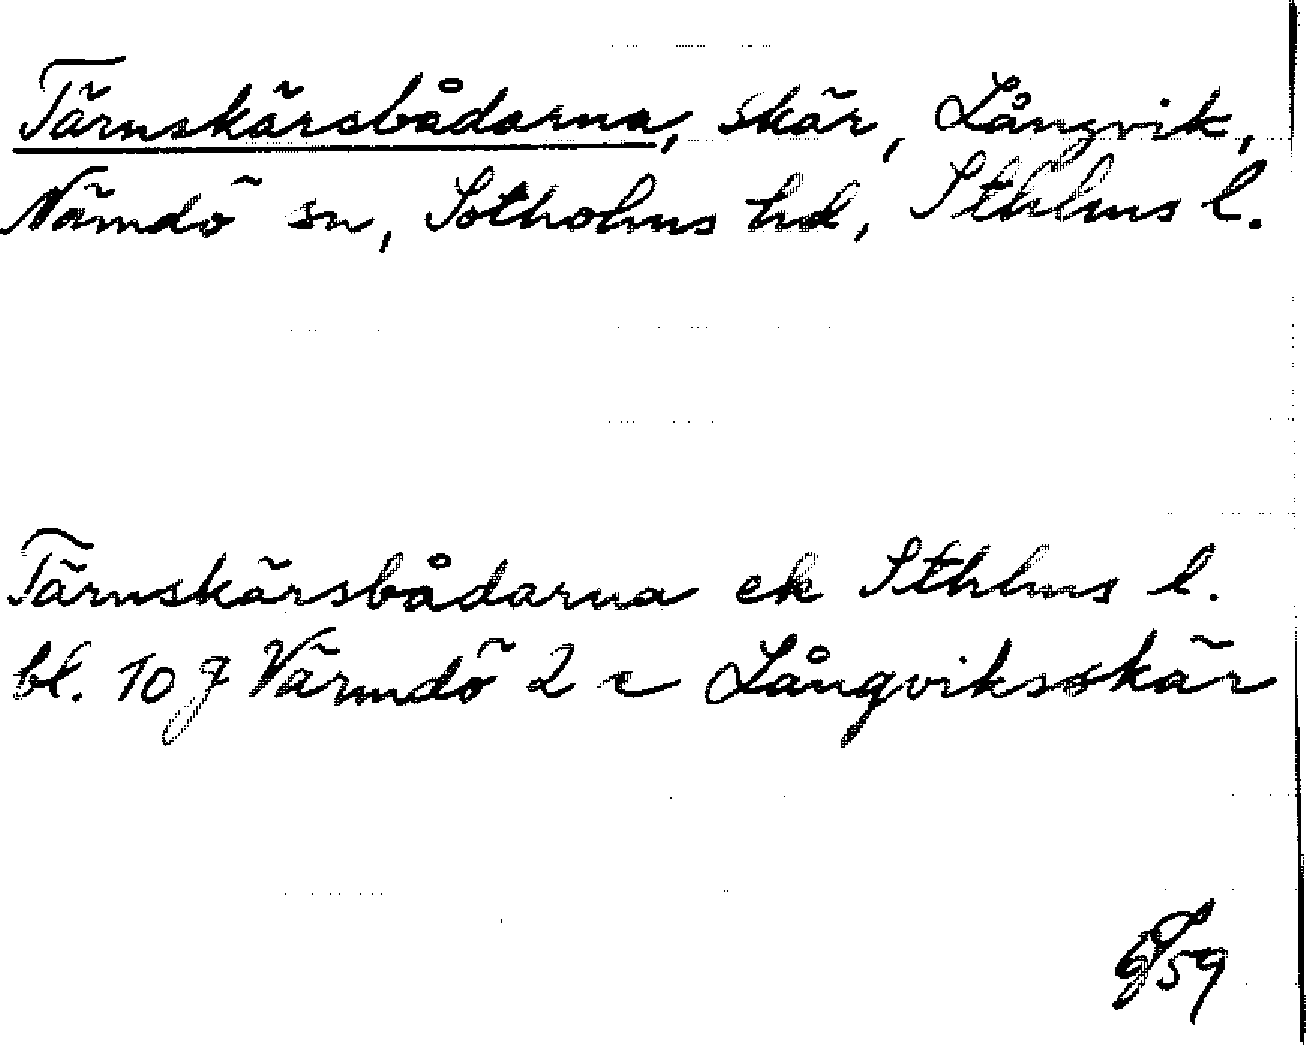 Tärnskärsbådarna, skär, Långvik,
Nämdö sn, Sotholms hd, Sthlms l.
Tärnskärsbådarna ek Sthlms l.
bl. 10 J Värmdö 2 c Långviksskär
59